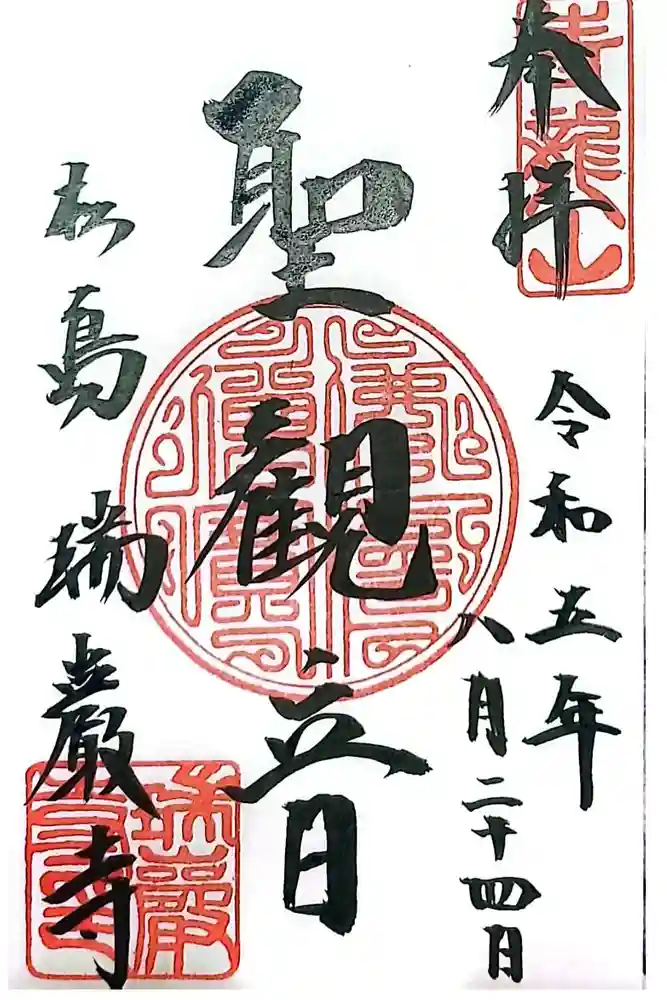 奉拝
青龍山
令和五年
八月二十四日
聖観音
松島 瑞巌寺